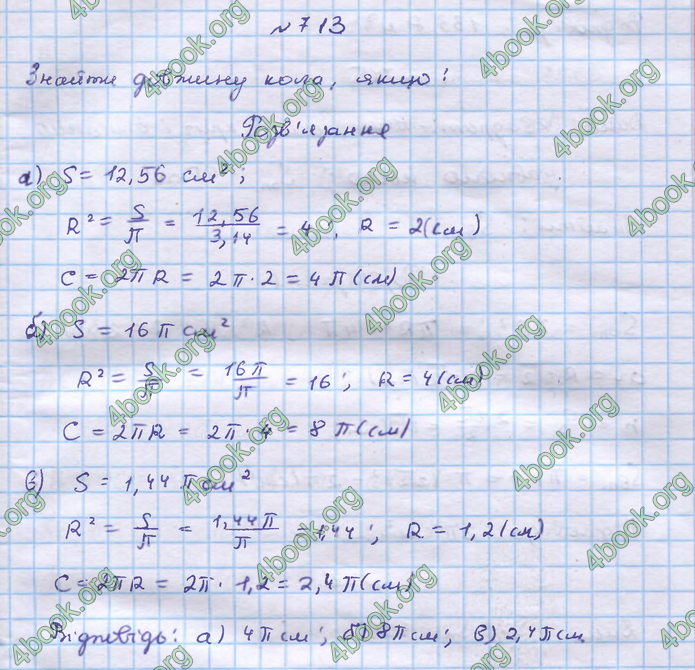 № 713
Знайти довжину кола, якщо:
Розв'язання
а) S = 12,56 см²;
R² = S/π = 12,56/3,14 = 4; R = 2(см)
C = 2πR = 2π·2 = 4π(см)
б) S = 16π см²
R² = S/π = 16π/π = 16; R = 4(см)
C = 2πR = 2π·4 = 8π(см)
в) S = 1,44π см²
R² = S/π = 1,44π/π = 1,44; R = 1,2(см)
C = 2πR = 2π·1,2 = 2,4π(см)
Відповідь: а) 4π см; б) 8π см; в) 2,4π см.
4book.org